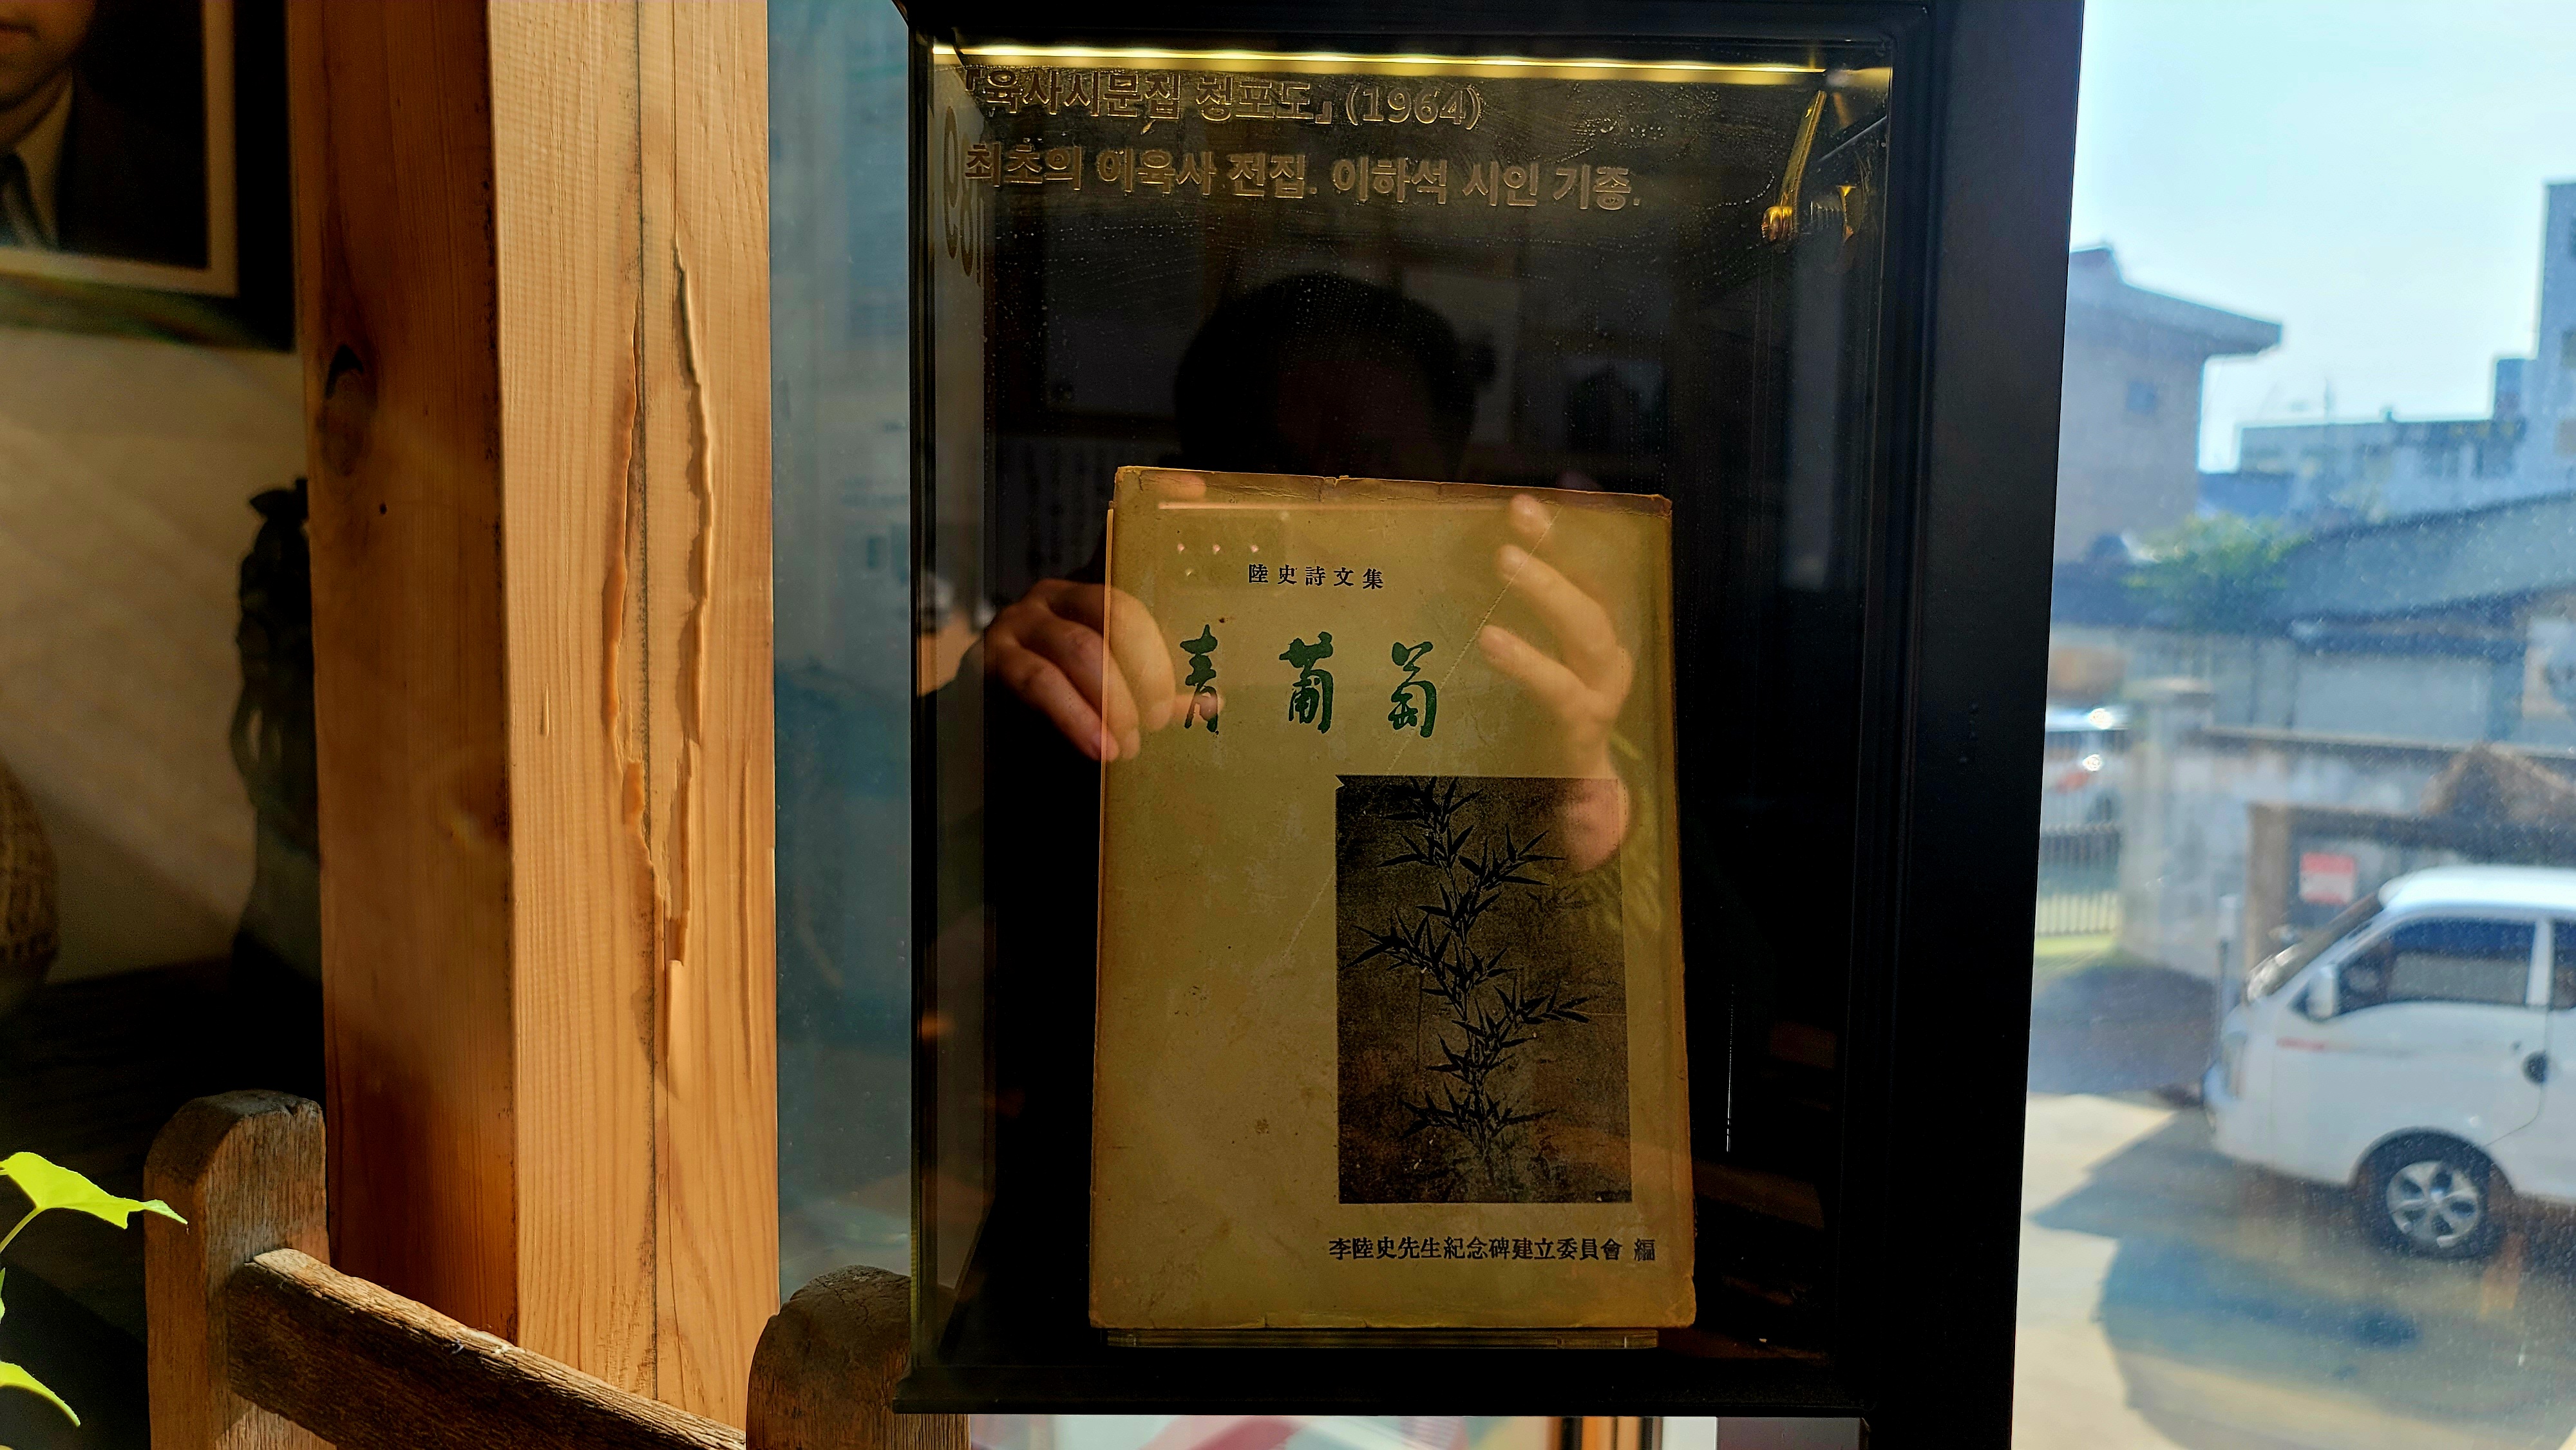 『육사시문집 청포도』 (1964)
최초의 이육사 전집. 이하석 시인 기증.
陸史詩文集
靑葡萄
李陸史先生紀念碑建立委員會 編